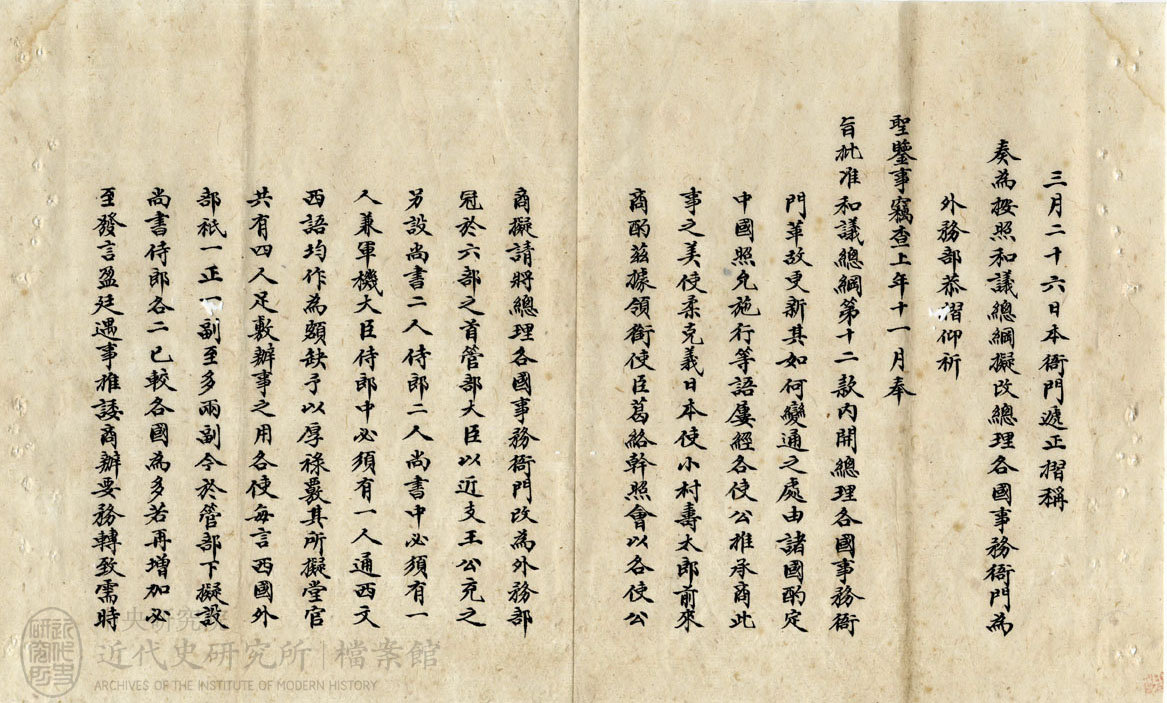 三月二十六日本衙門遞正摺稱
奏為按照和議總綱擬改總理各國事務衙門為
外務部恭摺仰祈
聖鑒事竊查上年十一月奉
旨批准和議總綱第十二款內開總理各國事務衙
門革故更新其如何變通之處由諸國酌定
中國照允施行等語屢經各使公推承商此
事之美使柔克義日本使小村壽太郎前來
商酌茲據領銜使臣葛絡幹照會以各使公
商擬請將總理各國事務衙門改為外務部
冠於六部之首管部大臣以近支王公充之
另設尚書二人侍郎二人尚書中必須有一
人兼軍機大臣侍郎中必須有一人通西文
西語均作為額缺予以厚祿覈其所擬堂官
共有四人足敷辦事之用各使每言西國外
部祇一正一副至多兩副今於管部下擬設
尚書侍郎各二已較各國為多若再增加必
至發言盈廷遇事推諉商辦要務轉致需時
中央研究院
近代史研究所|檔案館
ARCHIVES OF THE INSTITUTE OF MODERN HISTORY